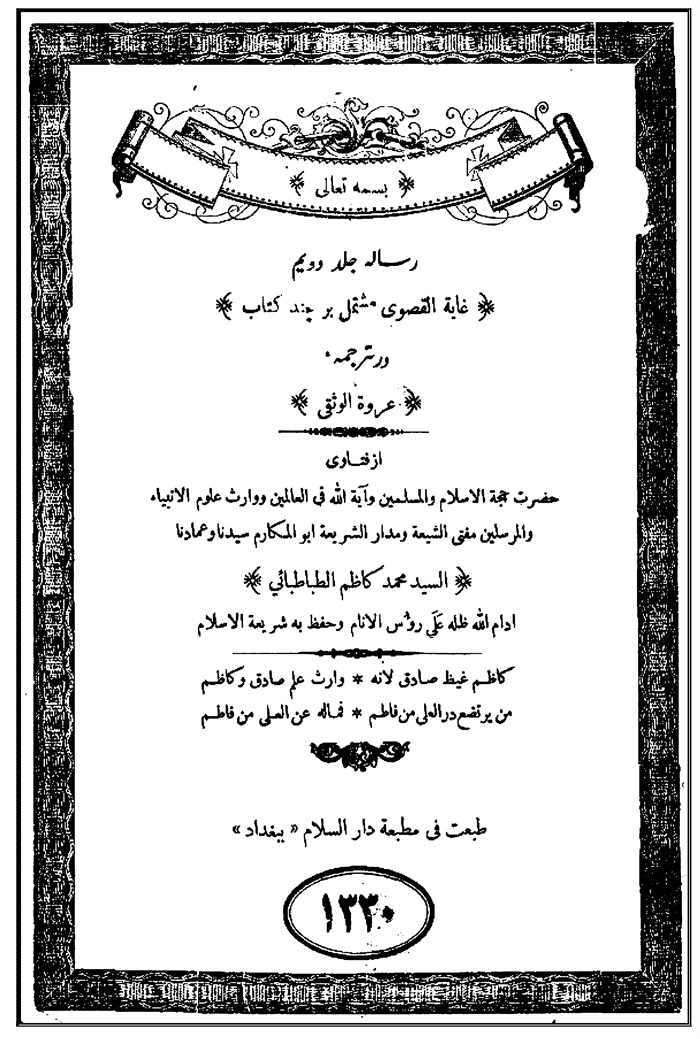 بسمه تعالی
رساله جلد دوویم
غایة القصوی مشتمل بر چند کتاب
در ترجمهء
عروة الوثقی
از فتاوی
حضرت حجة الاسلام والمسلمین وآیة الله فی العالمین ووارث علوم الانبیاء
والمرسلین مفتی الشیعة ومدار الشریعة ابو المکارم سیدنا وعمادنا
السید محمد کاظم الطباطبائي
ادام الله ظله علی رؤس الانام وحفظ به شریعة الاسلام
کاظم غیظ صادق لانه * وارث علم صادق وکاظم
من یرتضع در العلی من فاطم * فماله عن العلی من فاطم
طبعت فی مطبعة دار السلام « ببغداد »
١٣٣٠